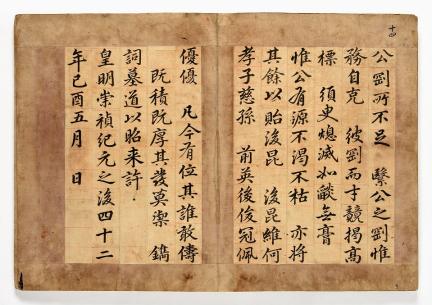 十四
公劉所不足　繄公之劉惟
務自克　彼劉而才競揭高
標　須臾熄滅如𦦨無膏
惟公有源不渴不枯　亦將
其餘以貽後昆　後昆維何
孝子慈孫　前英後俊冠佩
優優　凡今有位其誰敢儔
既積既厚其發莫禦　鐫
詞墓道以昭来許
皇明崇禎紀元之後四十二
年己酉五月　日